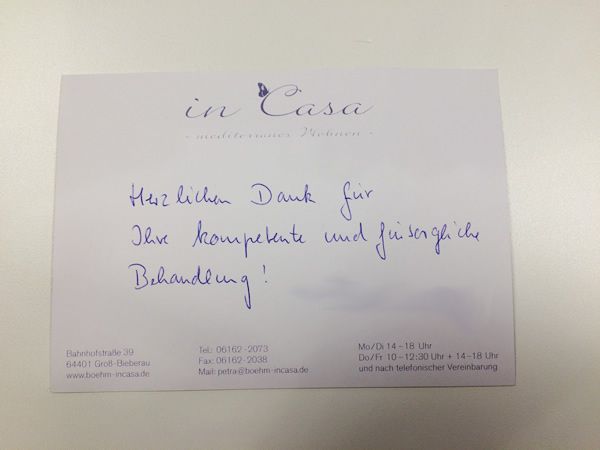 in Casa
- mediterranes Wohnen -
Herzlichen Dank für
Ihre kompetente und fürsorgliche
Behandlung!
Bahnhofstraße 39
64401 Groß-Bieberau
www.boehm-incasa.de
Tel.: 06162-2073
Fax: 06162-2038
Mail: petra@boehm-incasa.de
Mo/Di 14-18 Uhr
Do/Fr 10-12:30 Uhr + 14-18 Uhr
und nach telefonischer Vereinbarung